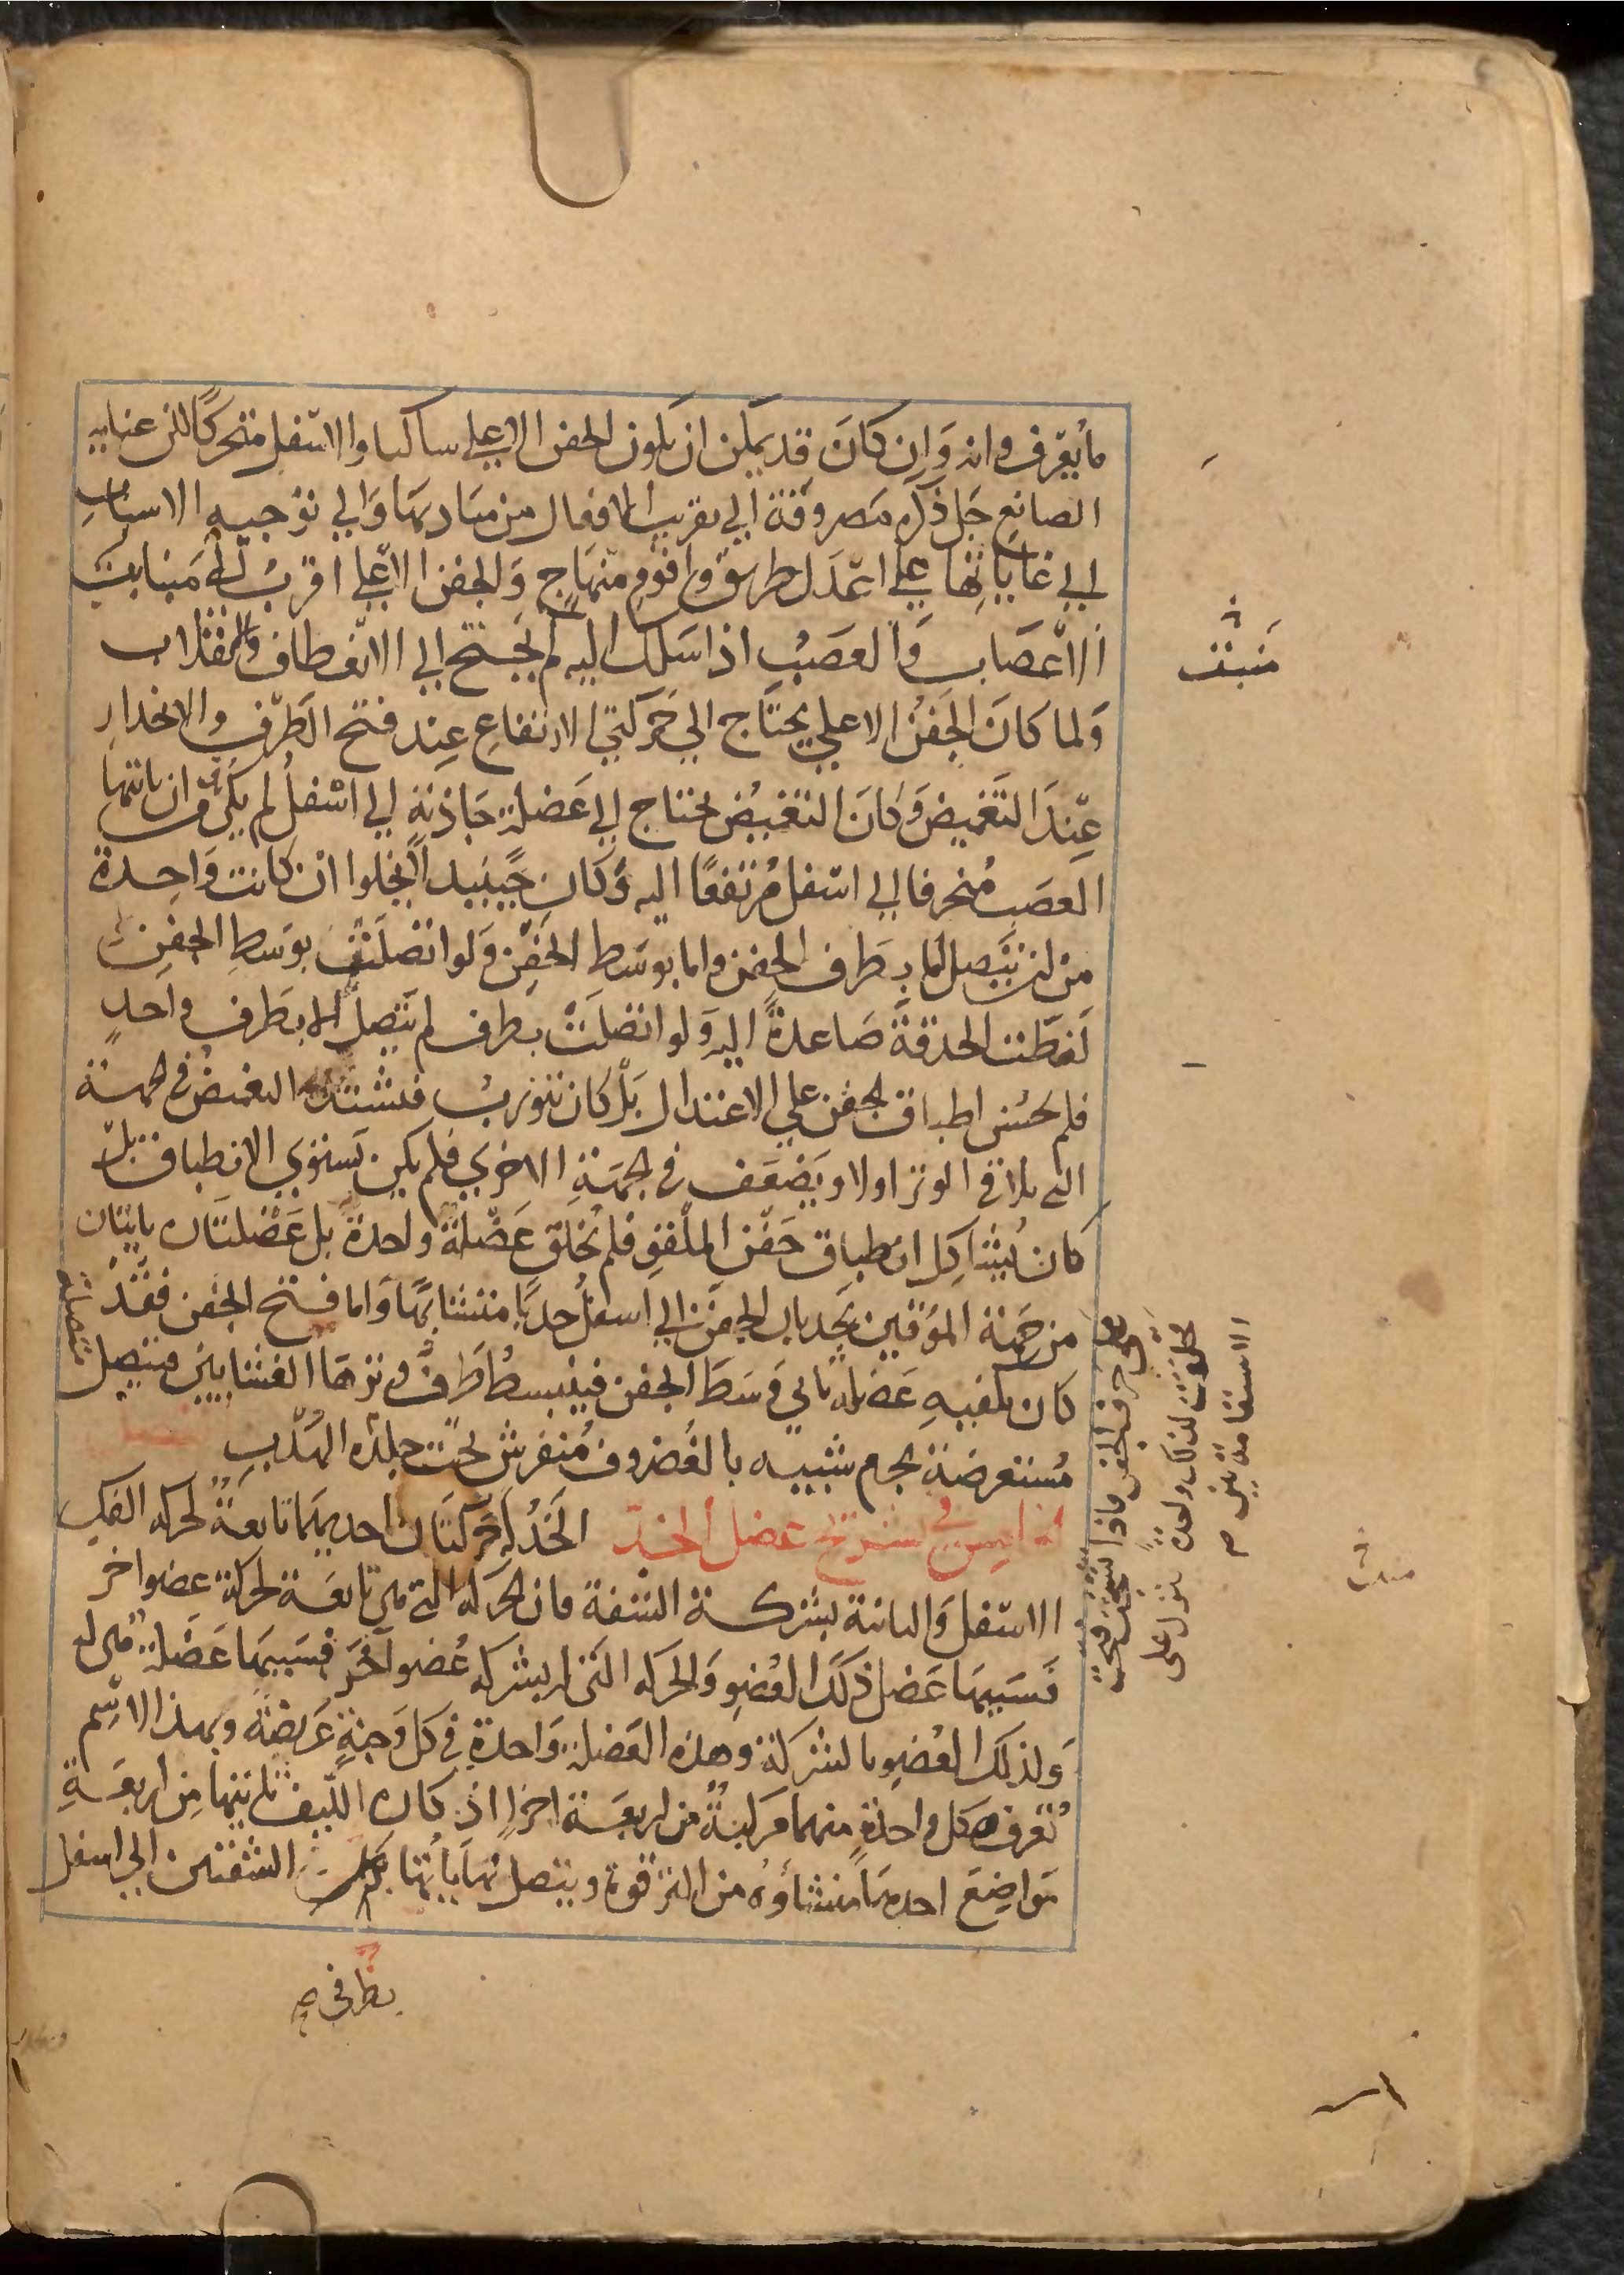 ما يعرف وانه وَاِن كانَ قد يمكن ان يكون الجفن الاعلى ساكنا والاسفل متحركًا لكن عنايه
الصانع جَل ذكره مصروفة الي تقريب الافعال من مباديها وَالي توجيه الاسباب
الي غاياتها علي اعدَل طريق واقوم منهَاج وَالجفن الاعلي اقربُ الي منابت
الاعصاب وَالعصب اذا سَلك اليه لم يحتج الي الانعطاف والانقلاب
وَلما كانَ الجَفنُ الاعلي يحتَاج الي حَركتي الارتفاع عِند فتح الطَرف والانحدار
عِندَ التغميض وَكانَ التغميُض يحتاج الي عَضلة جَاذبة الي اسفل لم يكن من ان ياتيها
العصَب مُنحرفا الي اسفل مُرتفعًا اليه وَكان حينيد لا يخلوا ان كانت وَاحِدة
من ان يتصل اما بطَرف الجفن واما بوسَط الجَفن وَلو اتصلَت بوَسط الجفن
لغطَت الحدقة صَاعدةً اليه وَلو اتصلَت بطرف لم يتصل الا بطَرف واحدٍ
فلم يحسُن اطباق الجفن علي الاعتدال بَل كان يتورب فيشتد التغميض في الجهة
التي يلاقي الوتر اولا وَيَضعَف في الجهَةِ الاخري فلم يكن يَستوي الانطباق بل
كان يُشاكِل انطباق جَفن الملقو فلم يُخلق عَضَلة واحدة بل عَضلتَان ياتيَان
من جهَة المؤقين يجَذبان الجفنَ الي اسفل جذبًا متشابهًا وَاما فتح الجفن فقَد
كان يكفيه عَضله تاتي وَسَط الجفن فينبسطُ طَرف وترها الغشايين فيتصل
مُستعرضة بجرم شبيه بالغضروف مُنفرش تحت جبلة الهُدب
الخامس في تشريح عضل الخد الخَدُ له حَركتَان احديهما تابعَةٌ لحركه الفك
الاسفل وَالثانية بشركة الشفة فان الحَركه التي هي تابعَة لحركة عضو اخر
فسَببها عَضل ذلكَ العُضو وَالحركه التي له بشركه عُضو آخَر فسَببها عَضلة هي له
وَلذلك العُضو بالشركة وهذه العَضلة وَاحدة في كل وَجنةٍ عَريضة وبهذا الاسم
تُعرف وكل واحدةٍ منهما مركبةٌ من اربعَة اجزا اذ كان الليف ياتيها من اربعَةِ
مَواضِع احدهَا منشاؤه من الترقوة ويتصل نهاياتُها الشفتين الي اسفل
منبت
حرف الجفن فاذا تشنجت فتحت
خلقت لذلك واحدة تنزل على
الاستقامة
بطرفي